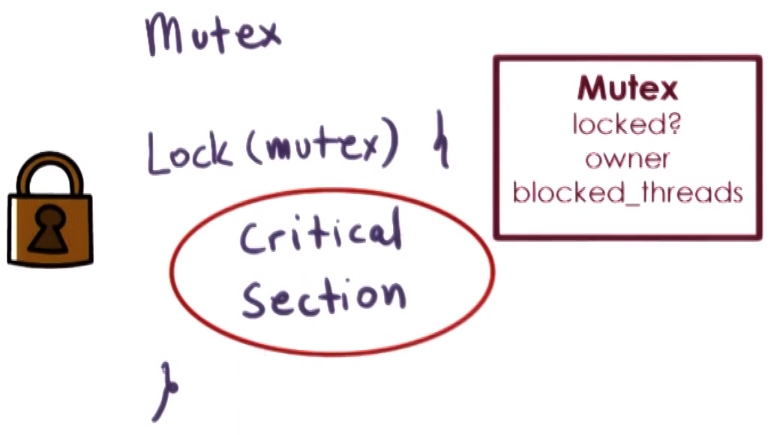 Mutex
Lock (mutex) {
Critical
Section
}
Mutex
locked?
owner
blocked_threads